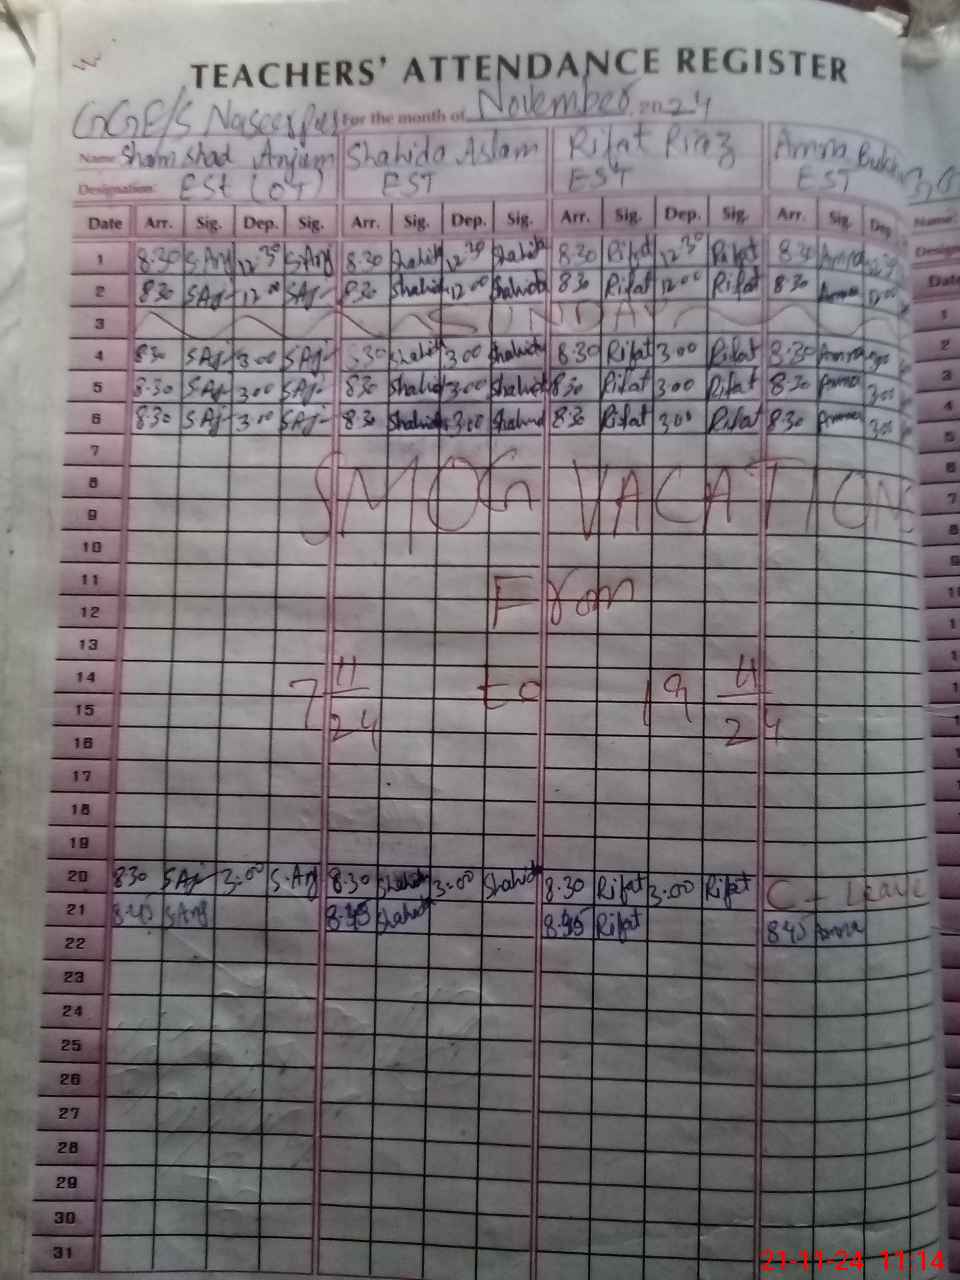 TEACHERS' ATTENDANCE REGISTER
GGE/S For the month of November 2024
Name Shamshad Anjum Shahida Aslam Rifat Riaz Amna
Designation: EST EST EST EST Name:
Date Arr. Sig. Dep. Sig. Arr. Sig. Dep. Sig. Arr. Sig. Dep. Sig. Arr. Sig. Dep.
1 8:30 S.Anj 12:30 S.Anj 8:30 Shahida 12:30 Shahida 8:30 Rifat 12:30 Rifat 8:30 Amna
2 8:30 SAj 12:00 SAj 8:30 Shahida 12:00 Shahida 8:30 Rifat 12:00 Rifat 8:30 Amna 12:00
3 SUNDAY
4 8:30 SAj 3:00 SAj 8:30 Shahida 3:00 Shahida 8:30 Rifat 3:00 Rifat 8:30 Amna 3:00
5 8:30 SAj 3:00 SAj 8:30 Shahida 3:00 Shahida 8:30 Rifat 3:00 Rifat 8:30 Amna 3:00
6 8:30 SAj 3:00 SAj 8:30 Shahida 3:00 Shahida 8:30 Rifat 3:00 Rifat 8:30 Amna 3:00
7
8 SMOG VACATION
9
10
11 From
12
13
14 7 11/24 to 19 11/24
15
16
17
18
19
20 8:30 SAj 3:00 S.Anj 8:30 Shahida 3:00 Shahida 8:30 Rifat 3:00 Rifat C-Leave
21 8:45 S.Anj 8:45 Shahida 8:45 Rifat 8:45 Amna
22
23
24
25
26
27
28
29
30
31
21-11-24 11:14